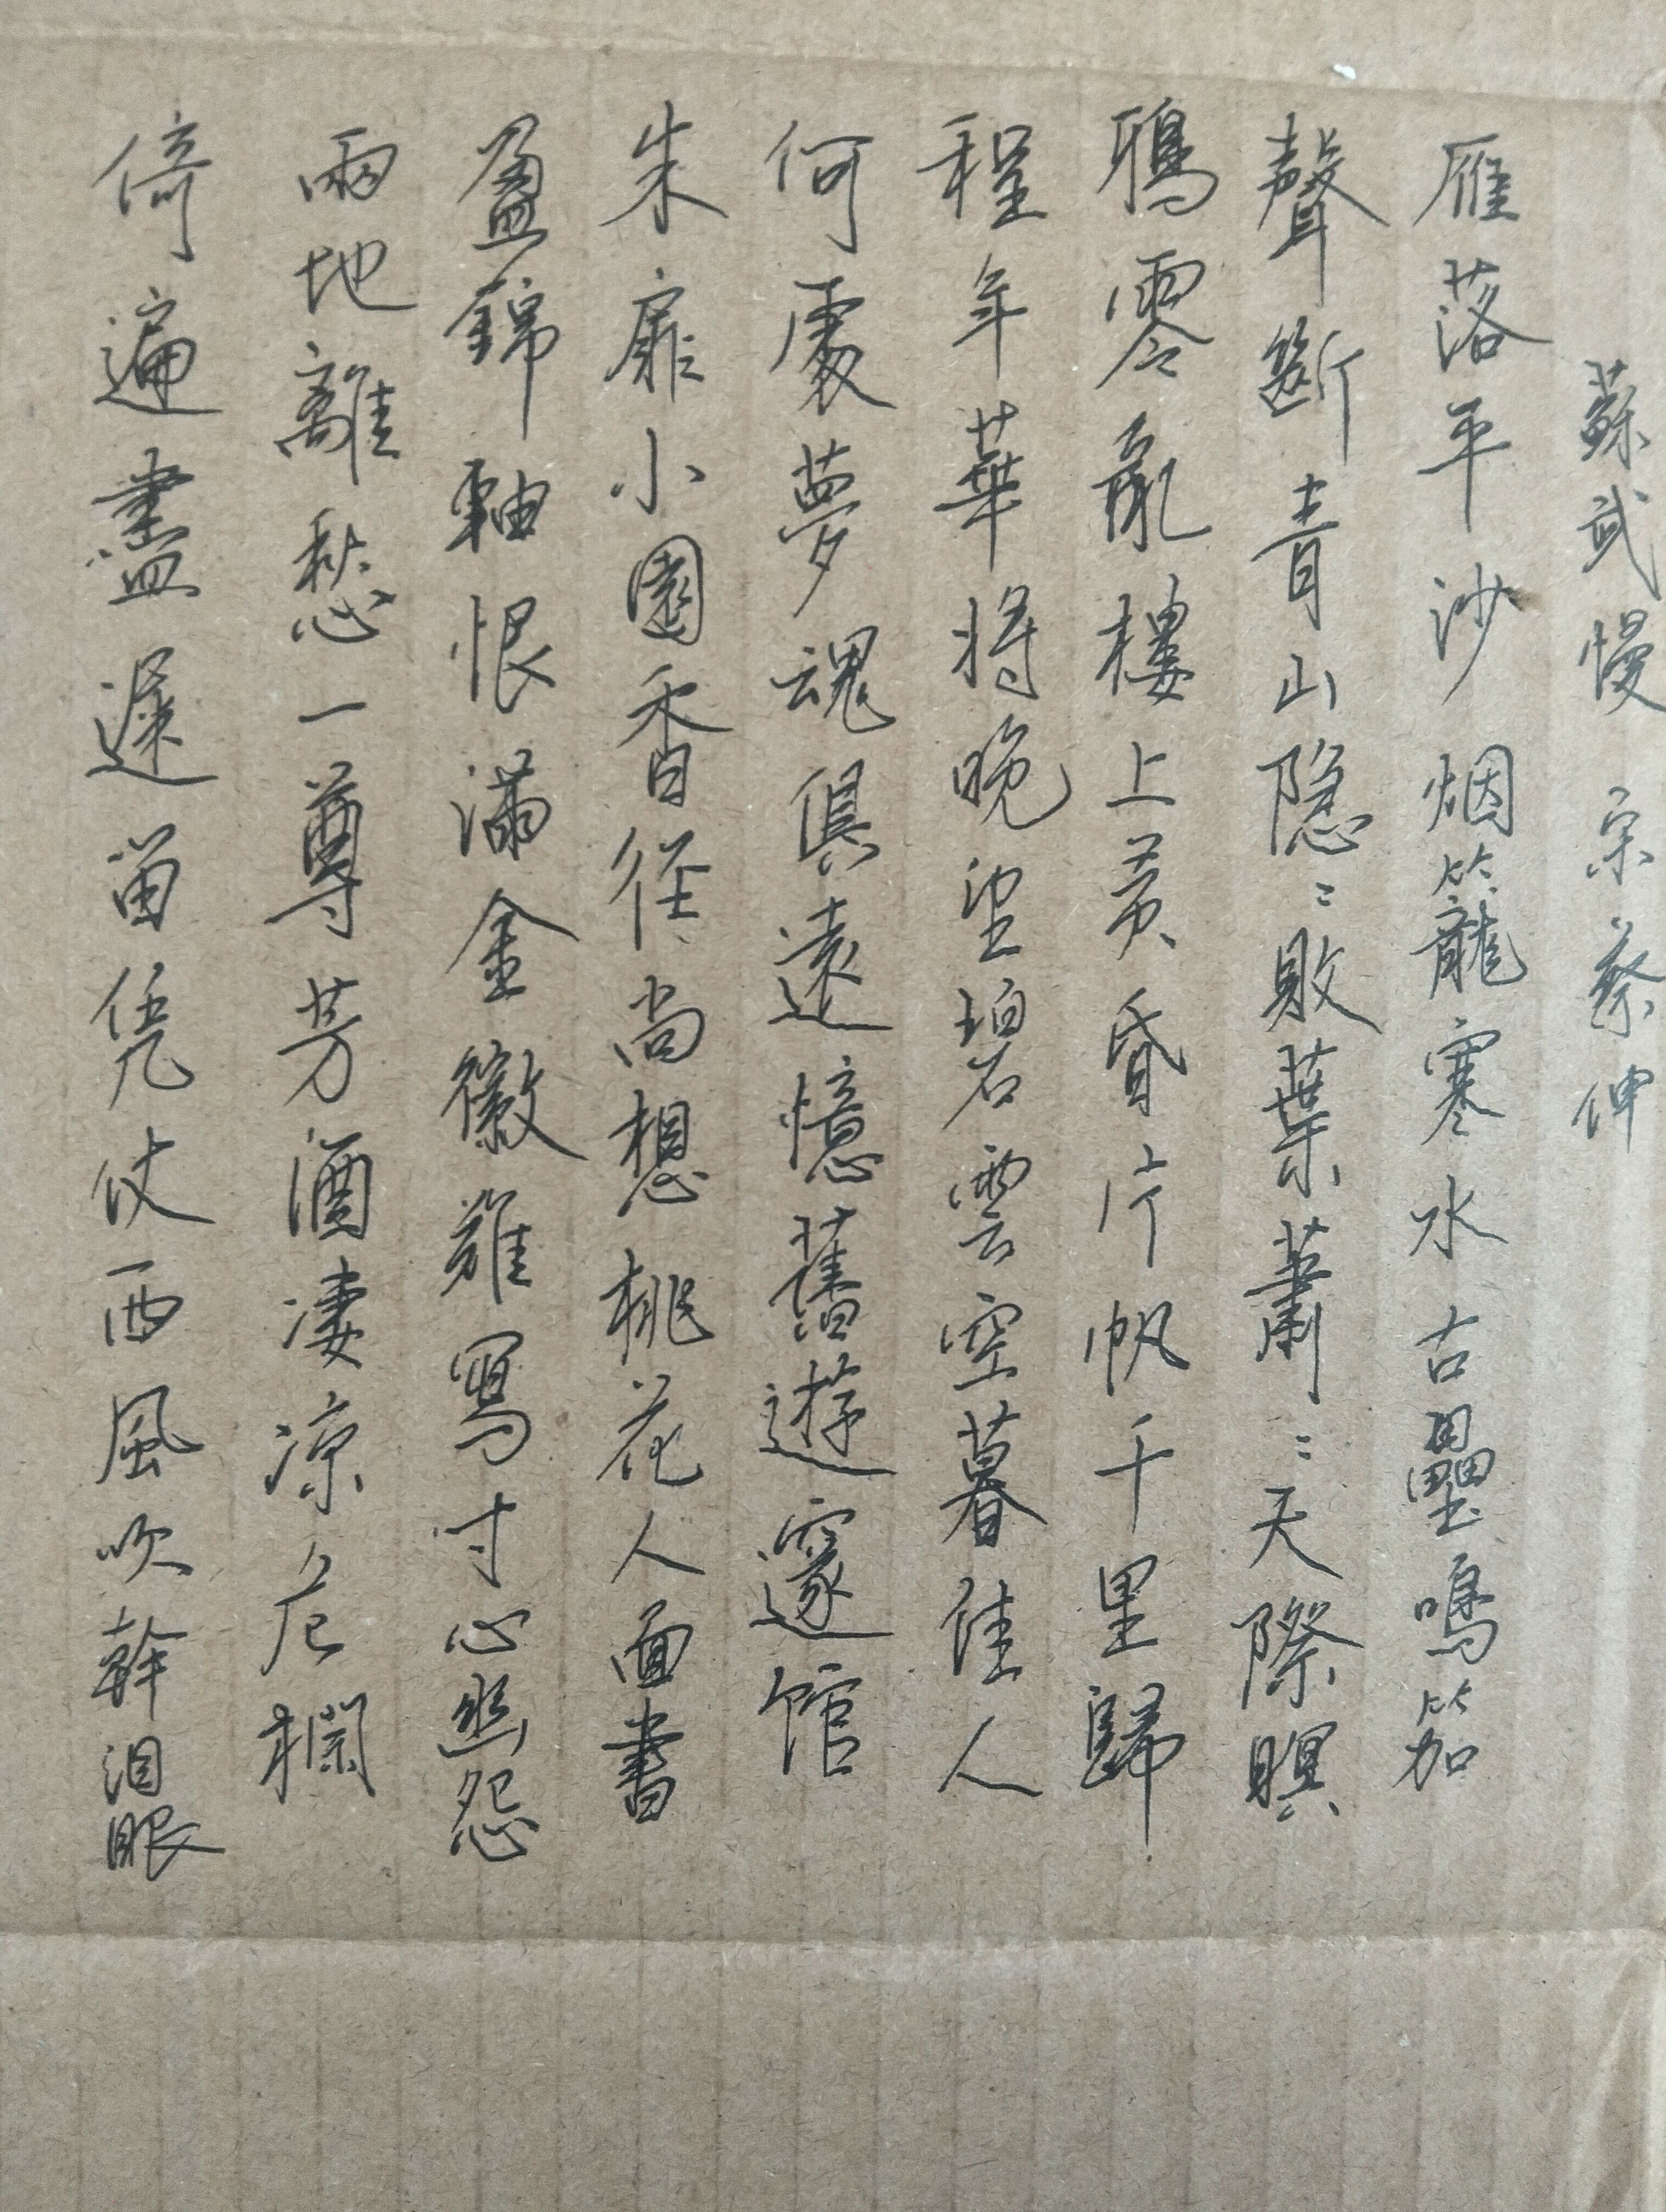 蘇武慢 宗蔡伸
雁落平沙烟籠寒水古壘鳴笳
聲斷青山隐〻敗葉蕭〻天際暝
鴉零亂樓上黄昏片帆千里歸
程年華將晚望碧雲空暮佳人
何處夢魂俱遠憶舊遊邃館
朱扉小園香徑尚想桃花人面書
盈錦軸恨滿金徽難寫寸心幽怨
兩地離愁一尊芳酒凄凉危欄
倚遍盡遲留凭仗西風吹幹泪眼